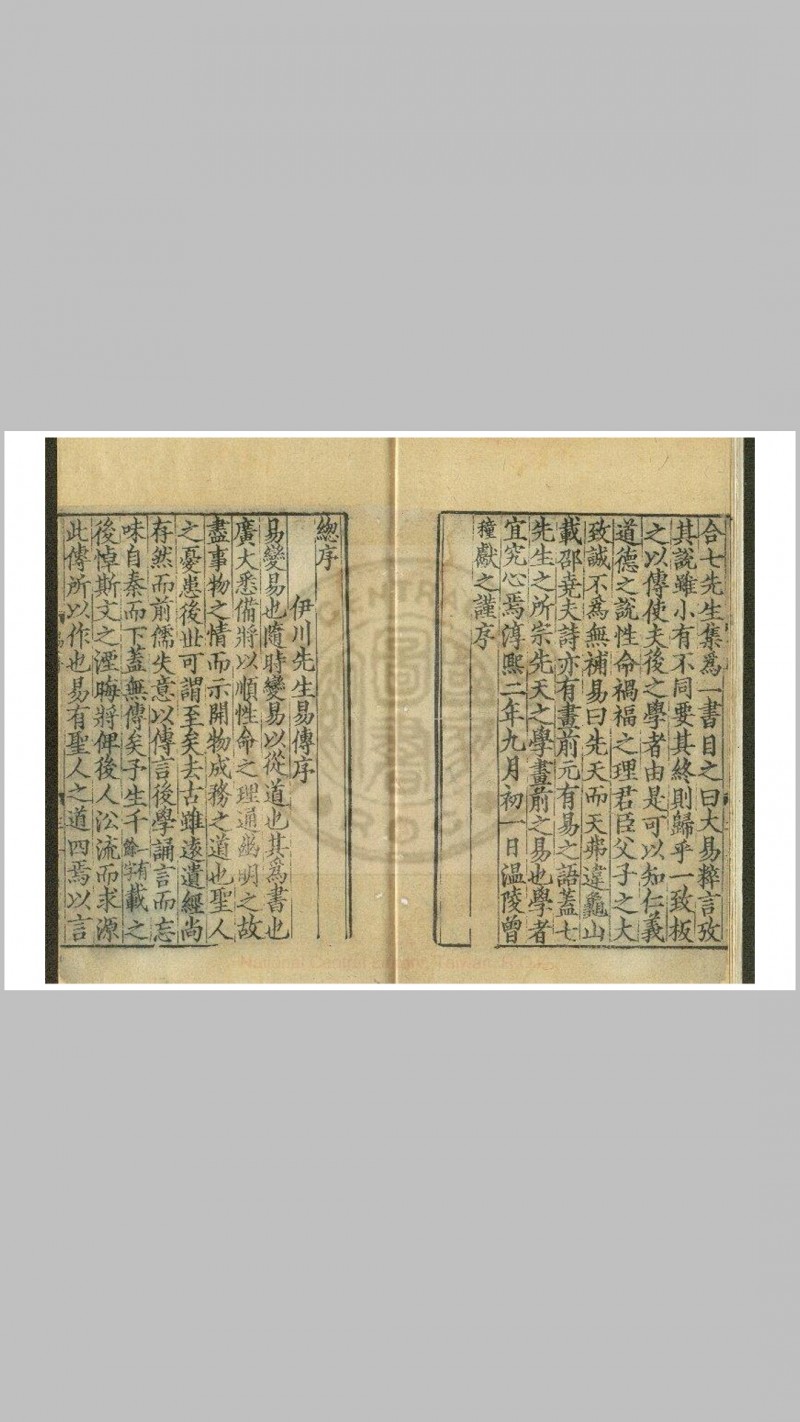 合七先生集爲一書目之曰大易粹言攷
其說雖小有不同要其終則歸乎一致板
之以傳使夫後之學者由是可以知仁義
道德之說性命禍福之理君臣父子之大
致誠不爲無補易曰先天而天弗違龜山
載邵堯夫詩亦有畫前元有易之語蓋七
先生之所宗先天之學畫前之易也學者
宜究心焉淳熙二年九月初一日温陵曾
穜獻之謹序
緫序
伊川先生易傳序
易變易也隨時變易以從道也其爲書也
廣大悉備將以順性命之理通幽明之故
盡事物之情而示開物成務之道也聖人
之憂患後世可謂至矣去古雖遠遺經尚
存然而前儒失意以傳言後學誦言而忘
味自秦而下蓋無傳矣予生千一有餘字載之
後悼斯文之湮晦將俾後人沿流而求源
此傳所以作也易有聖人之道四焉以言